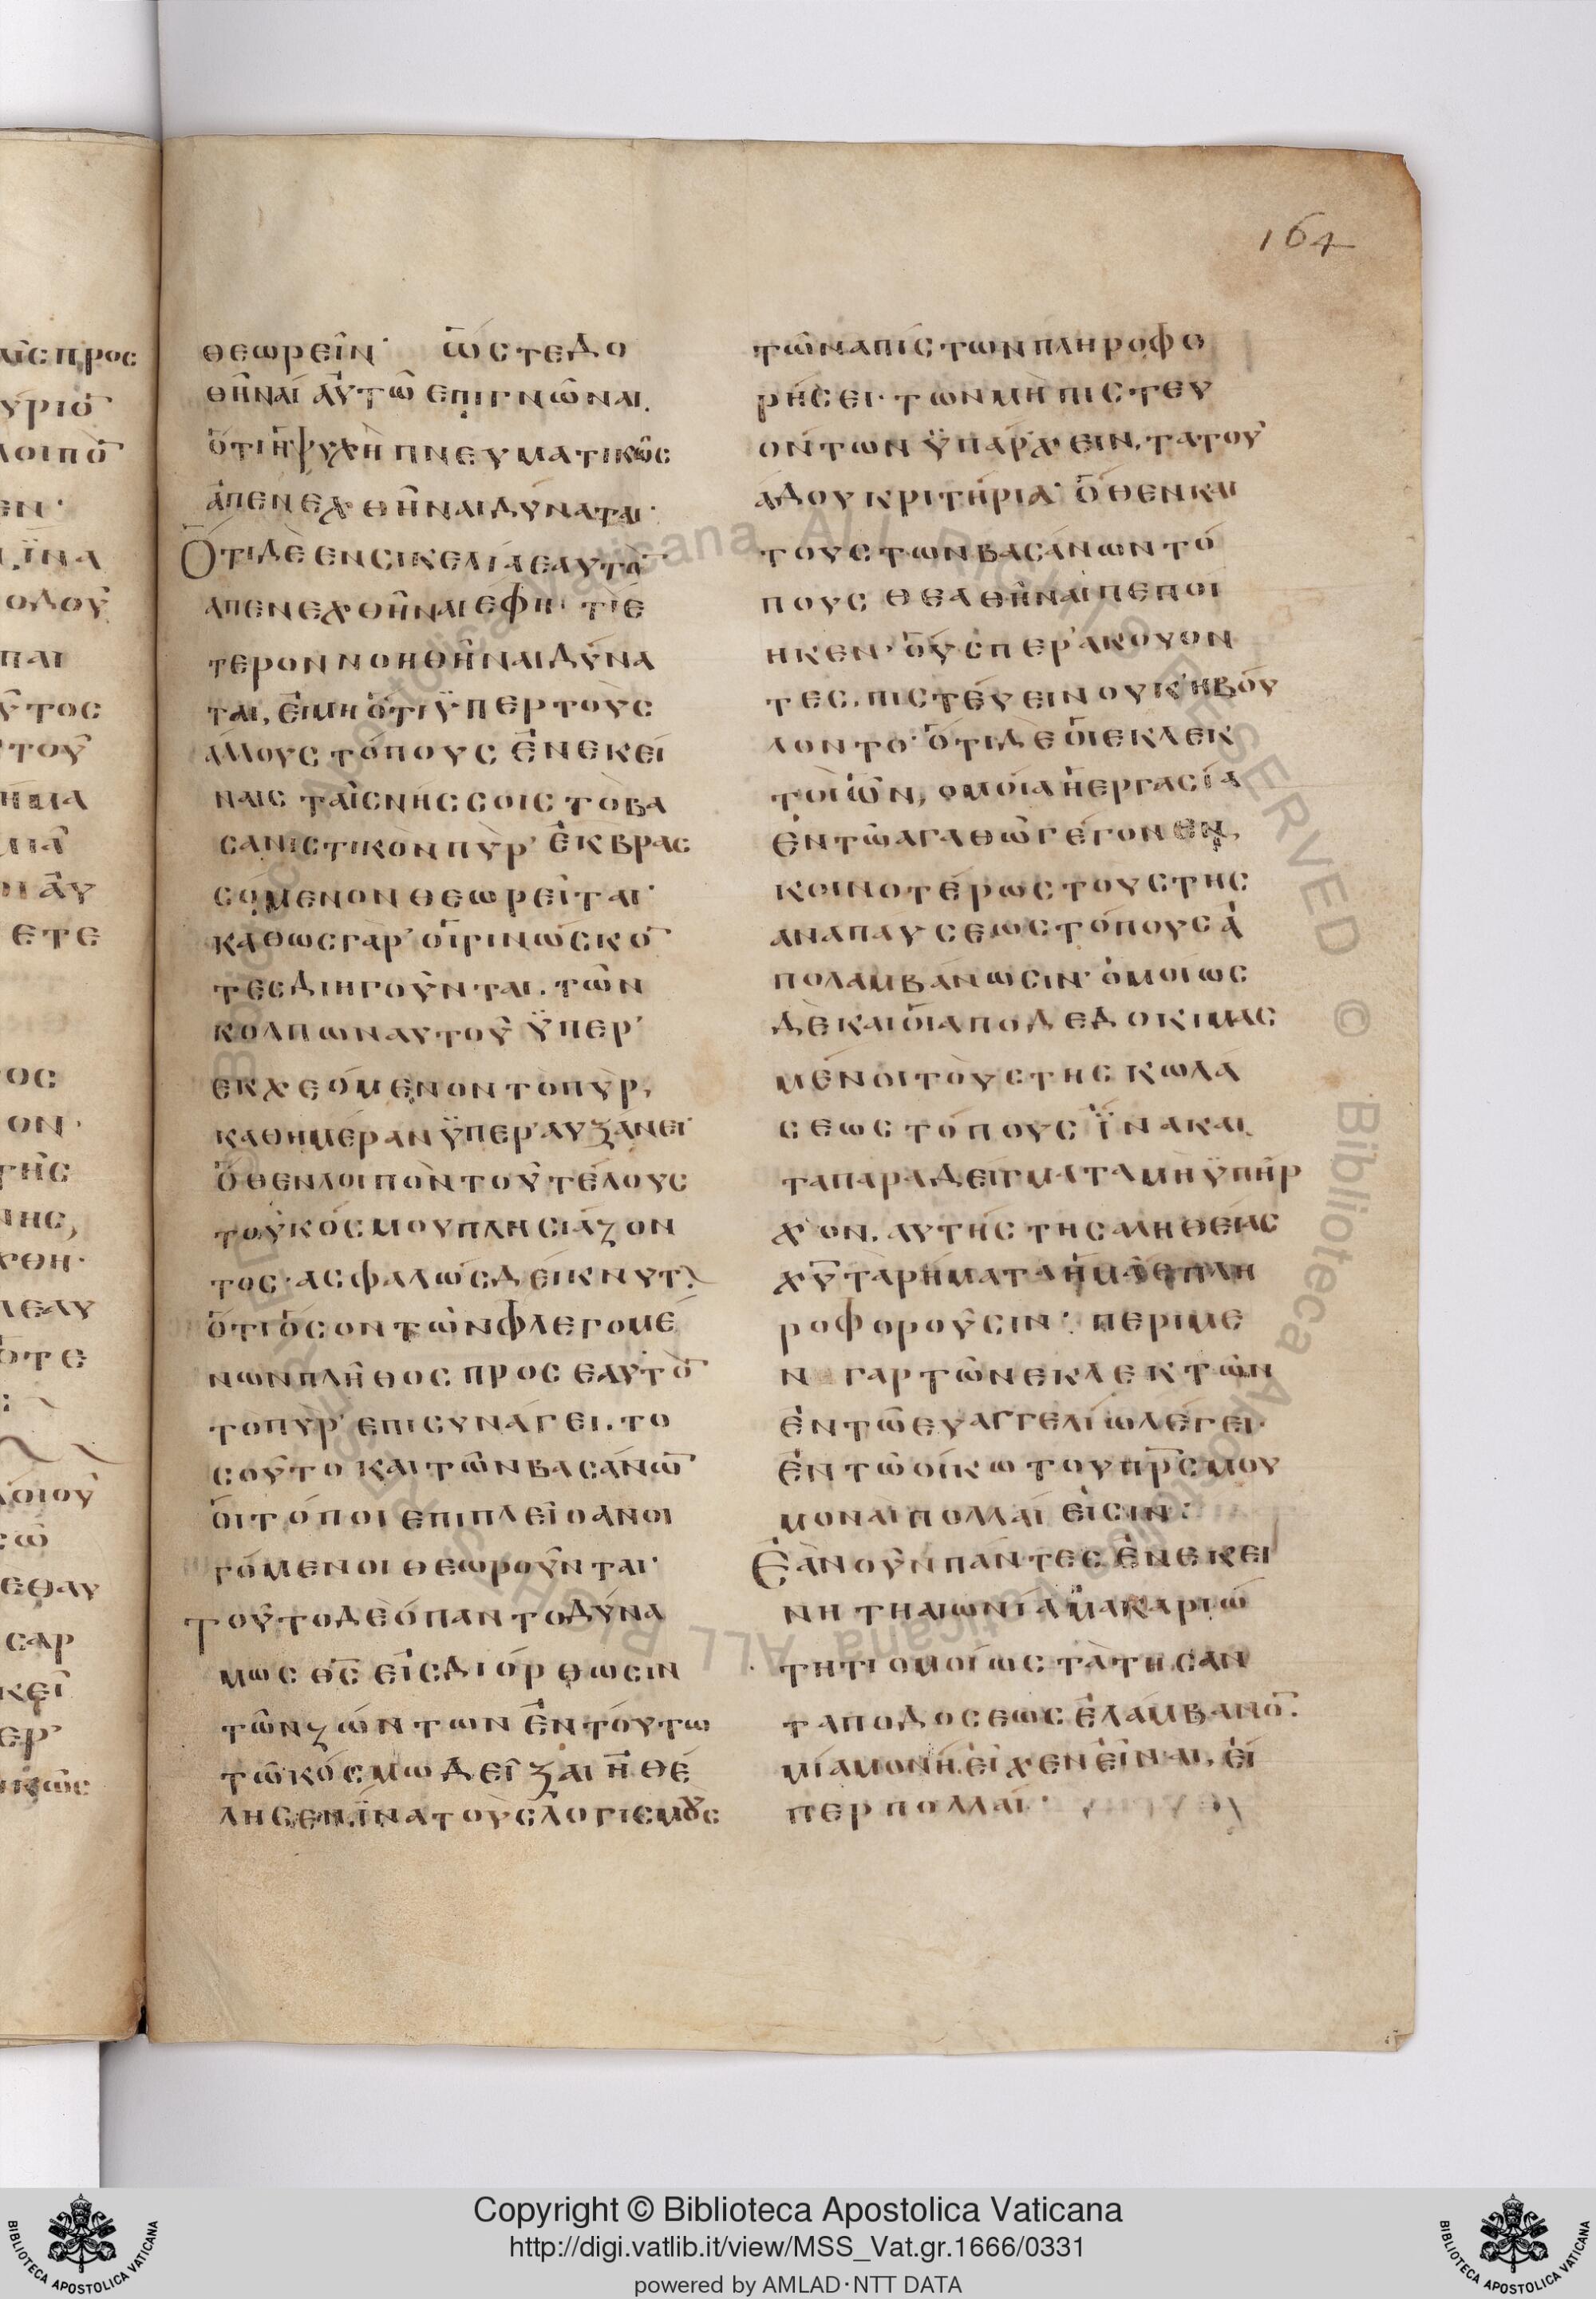 164
θεωρεῖν· ὥστε δο
θῆναι αὐτῶ ἐπιγνῶναι.
ὅτι ἡ ψυχὴ πνευματικῶς
ἀπενεχθῆναι δύναται·
Ὅτι δὲ ἐν σικελία ἑαυτὸ̅
ἀπενεχθῆναι ἔφη· τί ἕ
τερον νοηθῆναι δύνα
ται, εἰ μὴ ὅτι ϋπὲρ τοὺς
ἄλλους τόπους ἐν ἐκεί
ναις ταῖς νήσσοις τὸ βα
σανιστικὸν πῦρ ἐκβρασ
σόμενον θεωρεῖται·
καθὼς γὰρ οἱ γινώσκο̅
τες διηγοῦνται. τῶν
κόλπων αὐτοῦ ϋπερ
εκχεόμενον τὸ πῦρ,
καθημέραν ϋπεραυξάνει·
ὅθεν λοιπὸν τοῦ τέλους
τοῦ κόσμου πλησιάζον
τος· ἀσφαλῶς δείκνυτ
ὅτι ὅσον τῶν φλεγομέ
νων πλῆθος πρὸς ἑαυτὸ̅
τὸ πῦρ ἐπισυνάγει. το
σοῦτο καὶ τῶν βασάνω̅
οἱ τόποι ἐπιπλεῖο ἀνοι
γόμενοι θεωροῦνται·
Τοῦτο δὲ ὁ παντοδύνα
μως θ̅ς̅ εἰς διόρθωσιν
τῶν ζώντων ἐν τούτω
τῶ κόσμω δεῖξαι ἠθέ
λησεν. ἵνα τοὺς λογισμοὺς
τῶν ἀπίστων πληροφο
ρήσει· τῶν μὴ πιστευ
όντων ϋπάρχειν. τὰ τοῦ
ἅδου κριτήρια· ὅθεν καὶ
τοὺς τῶν βασάνων τό
πους θεαθῆναι πεποί
ηκεν· οὕσπερ ἀκούον
τες. πιστεύειν οὐκ ἠβού
λοντο· ὅτι δὲ οἱ ἐκλεκ
τοὶ ὧν, ὁμοία ἡ ἐργασία
ἐν τῶ ἀγαθῶ γέγονεν,
κοινοτέρως τοὺς τῆς
ἀναπαύσεως τόπους ἀ
πολαμβάνωσιν· ὁμοίως
δὲ καὶ οἱ ἀποδεδοκιμασ
μένοι τοὺς τῆς κωλά
σεως τόπους ϊνα καὶ
τὰ παραδείγματα μὴ ϋπῆρ
χον. αὐτῆς τῆς ἀληθείας
χ̅υ̅ τὰ ρήματα ἡμᾶς πλη
ροφοροῦσιν· περὶ με
ν γὰρ τῶν ἐκλεκτῶν
ἐν τῶ εὐαγγελίω λέγει·
ἐν τῶ οἴκω τοῦ π̅ρ̅ς̅ μου
μοναὶ πολλαί εἰσιν·
Ἐὰν οὖν πάντες ἐν ἐκεί
νη τῆ αἰωνία μακαριώ
τητι ὁμοίως τὰ τῆς ἀν
ταποδόσεως ἐλάμβανο̅.
μία μονὴ εἶχεν εἶναι, εἴ
περ πολλαί·
Copyright © Biblioteca Apostolica Vaticana
http://digi.vatlib.it/view/MSS_Vat.gr.1666/0331
powered by AMLAD·NTT DATA
BIBLIOTECA APOSTOLICA VATICANA
BIBLIOTECA APOSTOLICA VATICANA